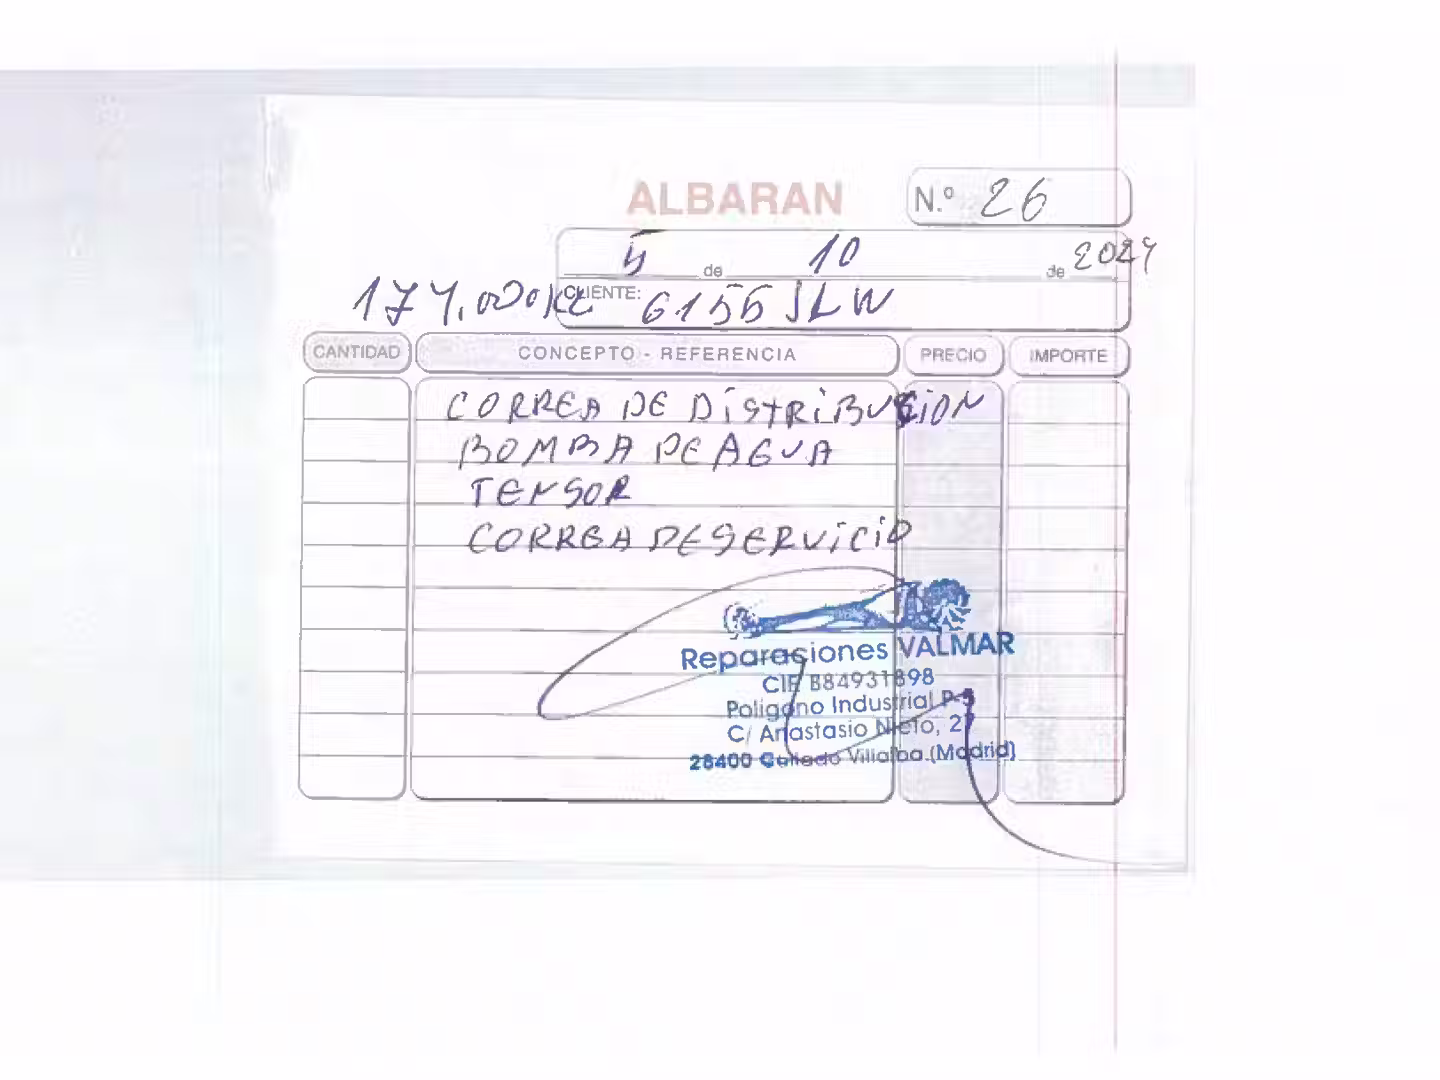 ALBARAN
N.º 26
5 de 10 de 2024
174.000 KL
CLIENTE: 6155 JLW
CANTIDAD CONCEPTO - REFERENCIA PRECIO IMPORTE
CORREA DE DISTRIBUCION
BOMBA DE AGUA
TENSOR
CORREA DE SERVICIO
Reparaciones VALMAR
CIF B84931898
Poligono Industrial P-5
C/ Anastasio Nieto, 27
28400 Collado Villalba.(Madrid)